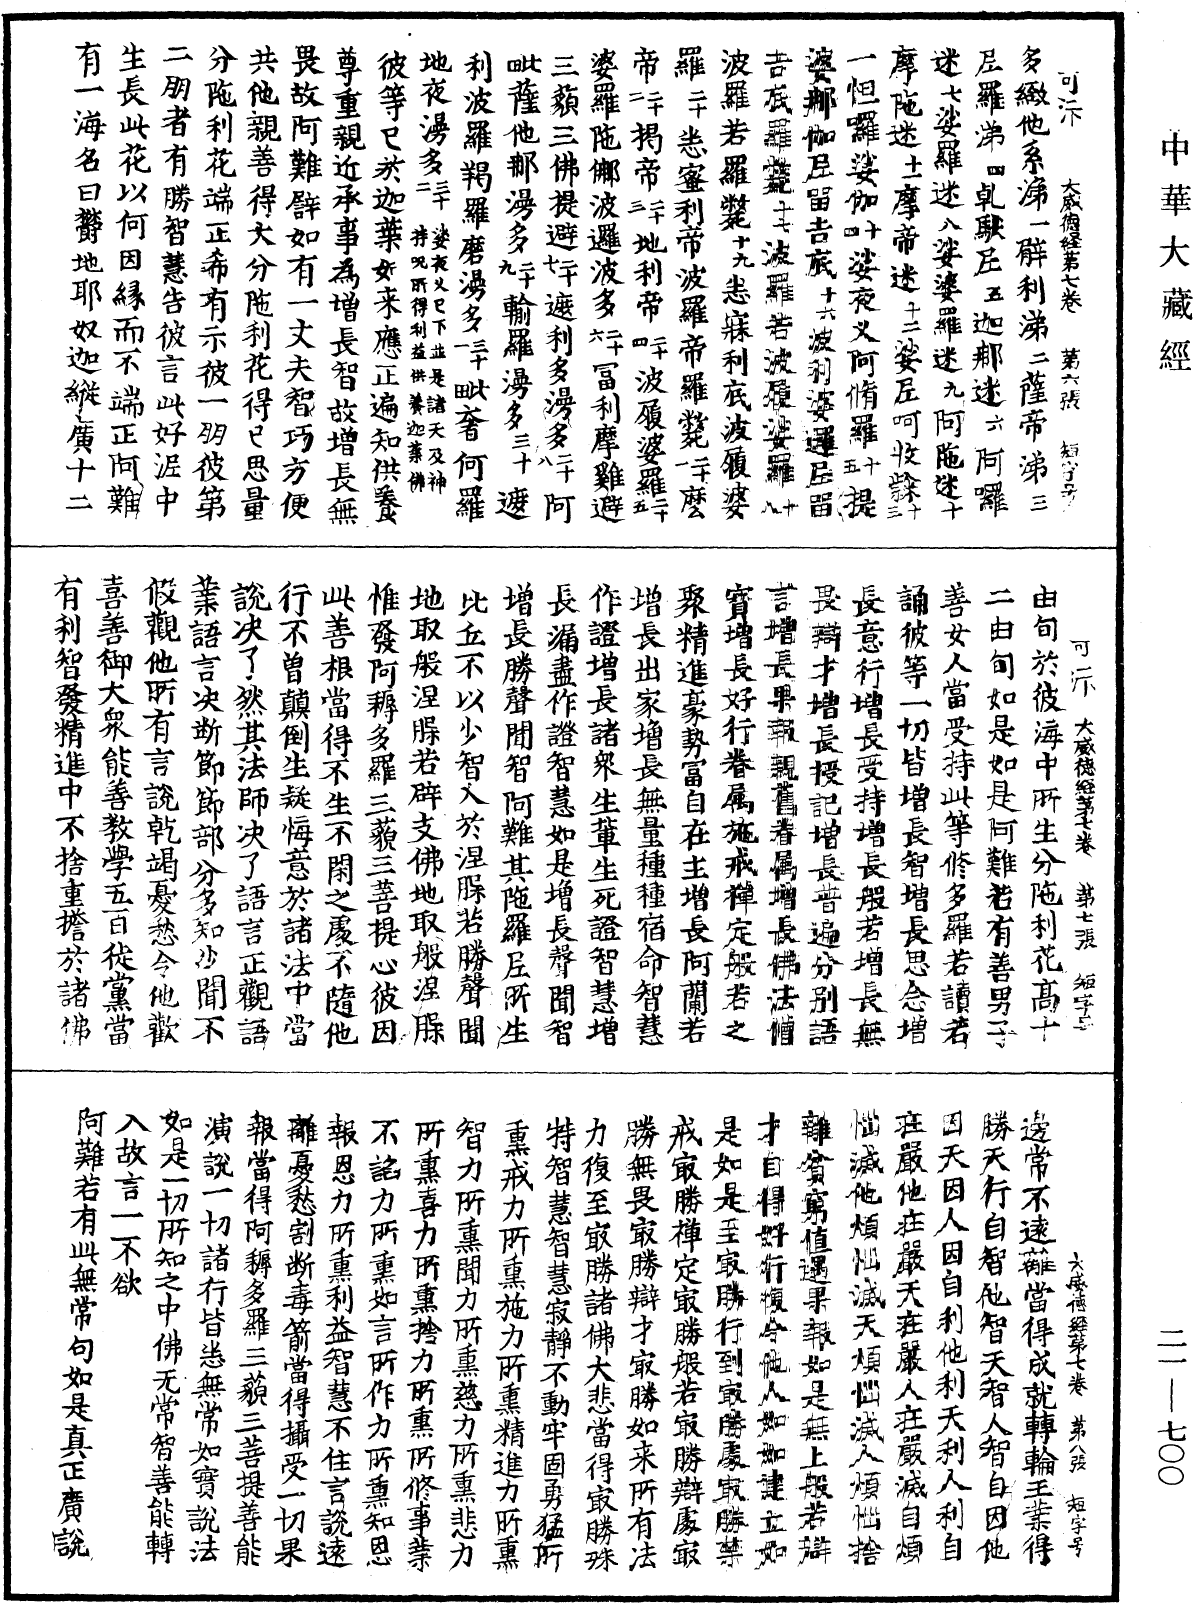 中華大藏經
二一—七〇〇
大威德經第七卷 第六張 短字号
多緻他系渧一辟利渧二薩帝渧三
尼羅渧四乹馱尼五迦那迷六阿囉
迷七娑羅迷八娑婆羅迷九阿陁迷十
摩陁迷十一摩帝迷十二娑尼呵收蘇十三
一怛羅娑伽十四娑夜叉阿脩羅十五提
婆那伽尼留吉底十六波利婆邏尼留
吉底羅甏十七波羅若波履婆羅十八
波羅若羅甏十九悉寐利底波履婆
羅二十悉蜜利帝波羅帝羅甏二十一麽
帝二十二揭帝二十三地利帝二十四波履婆羅二十五
婆羅陁㖿波邏波多二十六冨利摩難避
三藐三佛提避二十七遮利多漫多二十八阿
毗薩他那漫多二十九輸羅漫多三十遮
利波羅羯羅磨漫多三十一毗奢何羅
地夜漫多三十二娑夜叉已下並是諸天及神持呪所得利益供養迦葉佛
彼等已於迦葉如來應正遍知供養
尊重親近承事為增長智故增長無
畏故阿難譬如有一丈夫智巧方便
共他親善得大分陁利花得已思量
分陁利花端正希有示彼一朋彼第
二朋者有勝智慧告彼言此好涅中
生長此花以何因緣而不端正阿難
有一海名曰欝地耶奴迦縱廣十二
大威德經第七卷 第七張 短字号
由旬於彼海中所生分陁利花高十
二由旬如是如是阿難若有善男子
善女人當受持此等修多羅若讀若
誦彼等一切皆增長智增長思念增
長意行增長受持增長般若增長無
畏辯才增長授記增長普遍分別語
言增長果報親舊眷属增長佛法僧
寶增長好行眷属施戒禪定般若之
聚精進豪勢冨自在主增長阿蘭若
增長出家增長無量種種宿命智慧
作證增長諸衆生軰生死證智慧增
長漏盡作證智慧如是增長聲聞智
增長勝聲聞智阿難其陁羅尼所生
比丘不以少智入於涅脲若勝聲聞
地取般涅脲若辟支佛地取般涅脲
惟發阿耨多羅三藐三菩提心彼因
此善根當得不生不閑之處不隨他
行不曾顛倒生疑悔意於諸法中當
說决了然其法師决了語言正觀語
業語言决断節節部分多知少聞不
假觀他所有言說乾竭憂愁令他歡
喜善御大衆能善教學五百徒黨當
有利智發精進中不捨重擔於諸佛
大威德經第七卷 第八張 短字号
邊常不遠離當得成就轉輪王業得
勝天行自智他智天智人智自因他
因天因人因自利他利天利人利自
莊嚴他莊嚴天莊嚴人莊嚴滅自煩
惱滅他煩惱滅天煩惱滅人煩惱捨
離貧窮值遇果報如是無上般若辯
才自得好行復令他人如如建立如
是如是至㝡勝行到㝡勝處㝡勝禁
戒㝡勝禪定㝡勝般若㝡勝辯處㝡
勝無畏㝡勝辯才㝡勝如来所有法
力復至㝡勝諸佛大悲當得㝡勝殊
特智慧智慧寂靜不動牢固勇猛所
熏戒力所熏施力所熏精進力所熏
智力所熏聞力所熏慈力所熏悲力
所熏喜力所熏捨力所熏所修事業
不諂力所熏如言所作力所熏知恩
報恩力所熏利益智慧不住言說遠
離憂愁割断毒箭當得攝受一切果
報當得阿耨多羅三藐三菩提善能
演說一切諸行皆悉無常如寶說法
如是一切所知之中佛无常智善能轉
入故言一不欲
阿難若有此無常句如是真正廣說